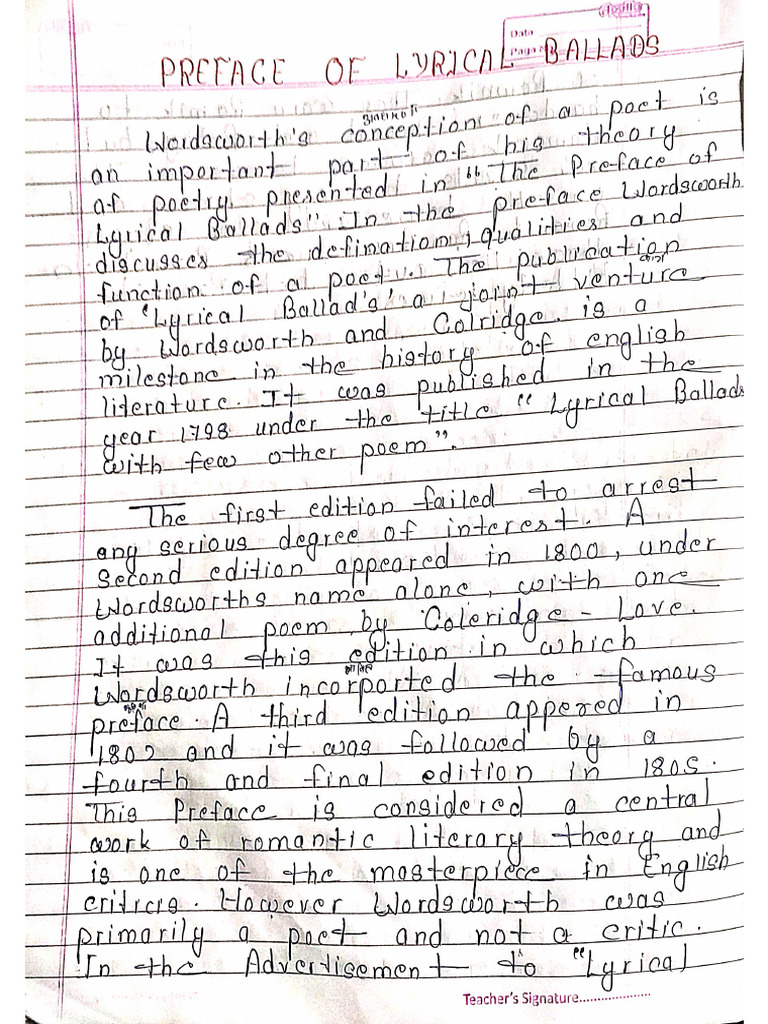 Date
Page
PREFACE OF LYRICAL BALLADS
Wordsworth's conception of a poet is
an important part of his theory
of poetry presented in "The Preface of
Lyrical Ballads" In the preface Wordsworth
discusses the defination, qualities and
function of a poet. The publication
of 'Lyrical Ballad's' a joint venture
by Wordsworth and Colridge. is a
milestone in the history of english
literature. It was published in the
year 1798 under the title "Lyrical Ballads
with few other poem".
The first edition failed to arrest
any serious degree of interest. A
Second edition appeared in 1800, under
Wordsworths name alone, with one
additional poem by Coleridge - Love.
It was this edition in which
Wordsworth incorported the famous
preface. A third edition appered in
1802 and it was followed by a
fourth and final edition in 1805.
This Preface is considered a central
work of romantic literary theory and
is one of the masterpiece in English
critrcrs. However Wordsworth was
primarily a poet and not a critic.
In the Advertisement to "Lyrical
Teacher's Signature....................